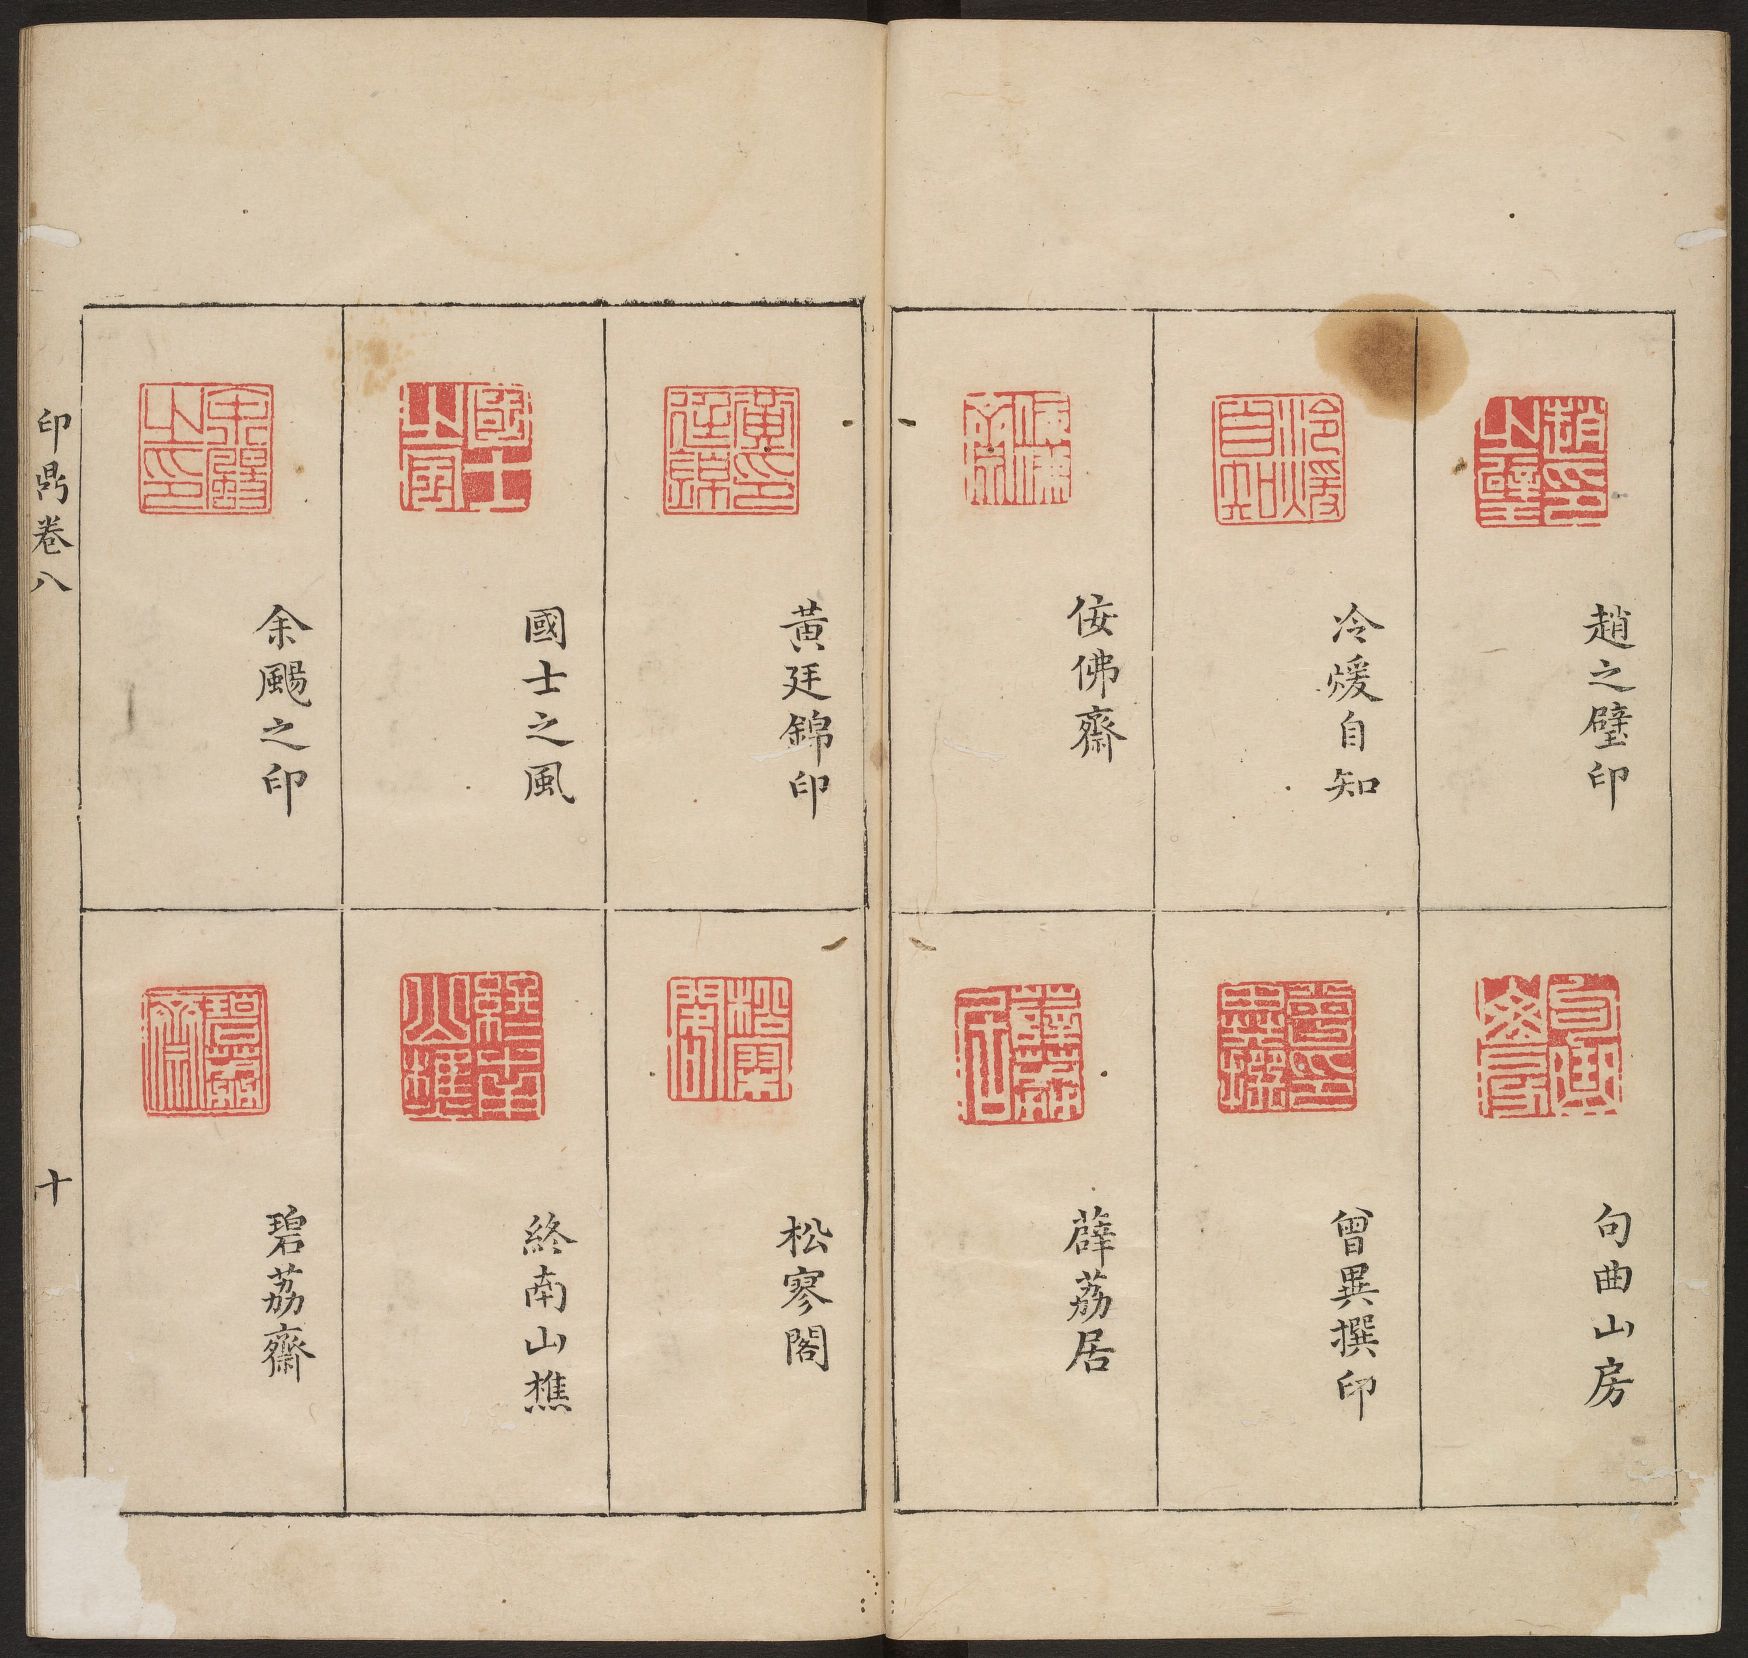 趙之璧印
冷煖自知
佞佛齋
句曲山房
曾異撰印
薜荔居
黃廷錦印
國士之風
余颺之印
松寥閣
終南山樵
碧荔齋
印鼎卷八
十